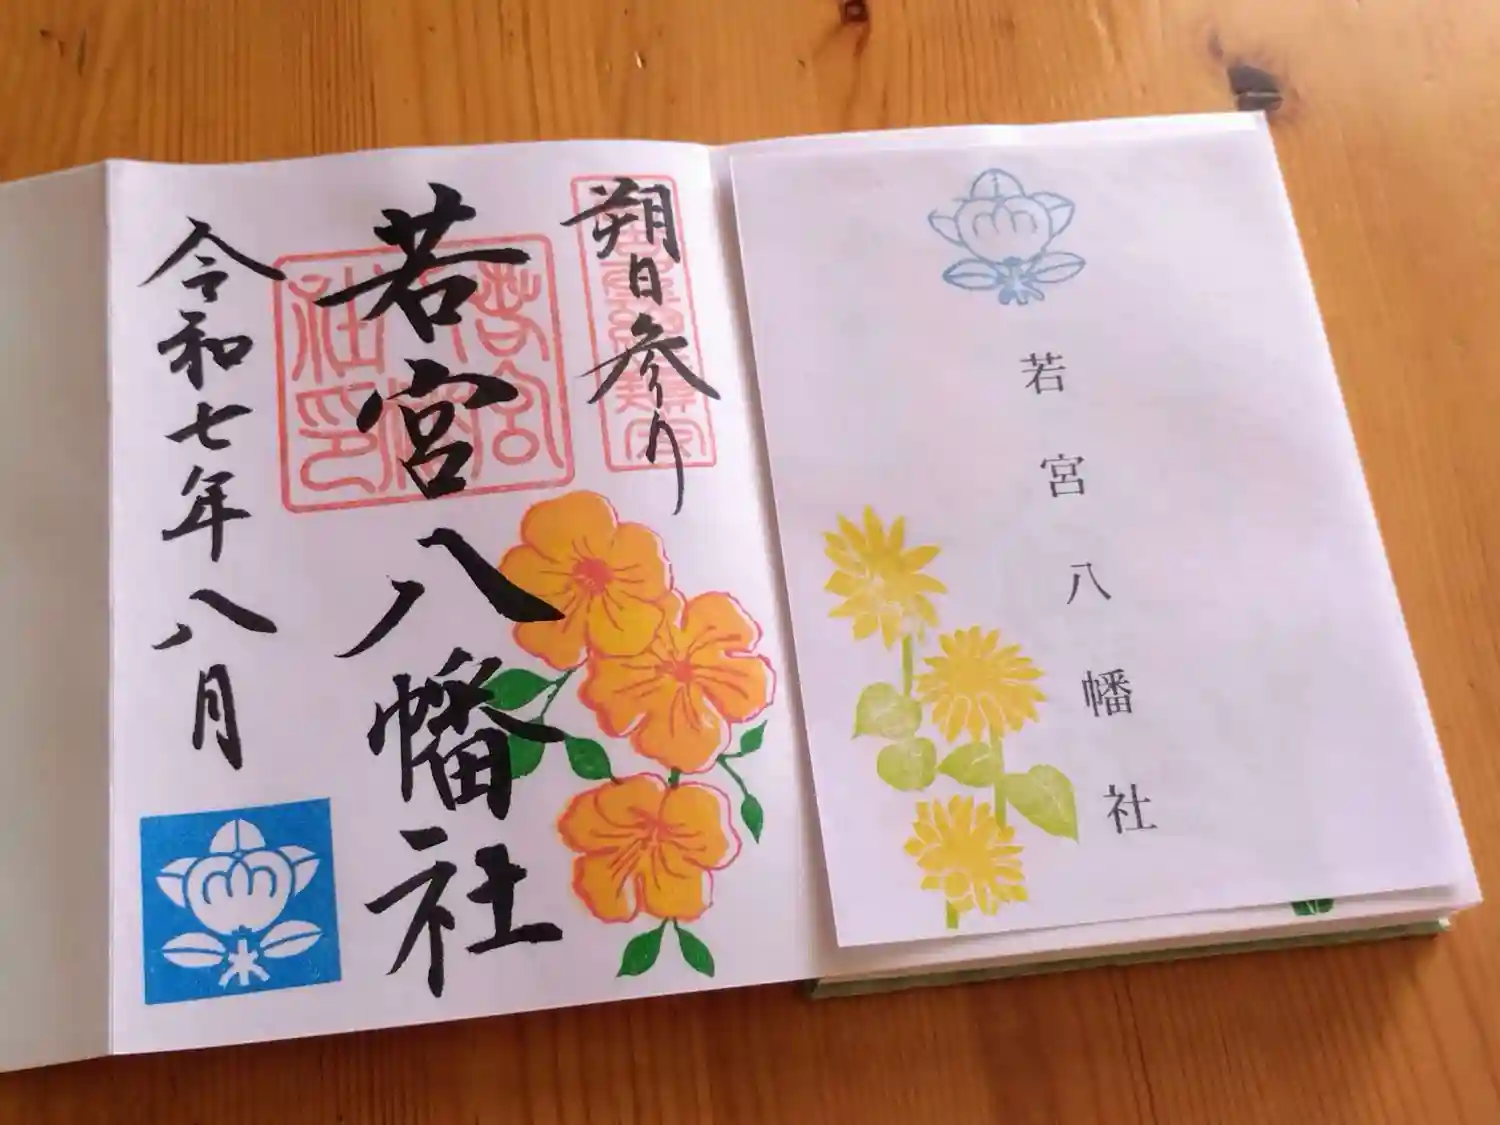 朔日参り
若宮八幡社
令和七年八月
若宮八幡社